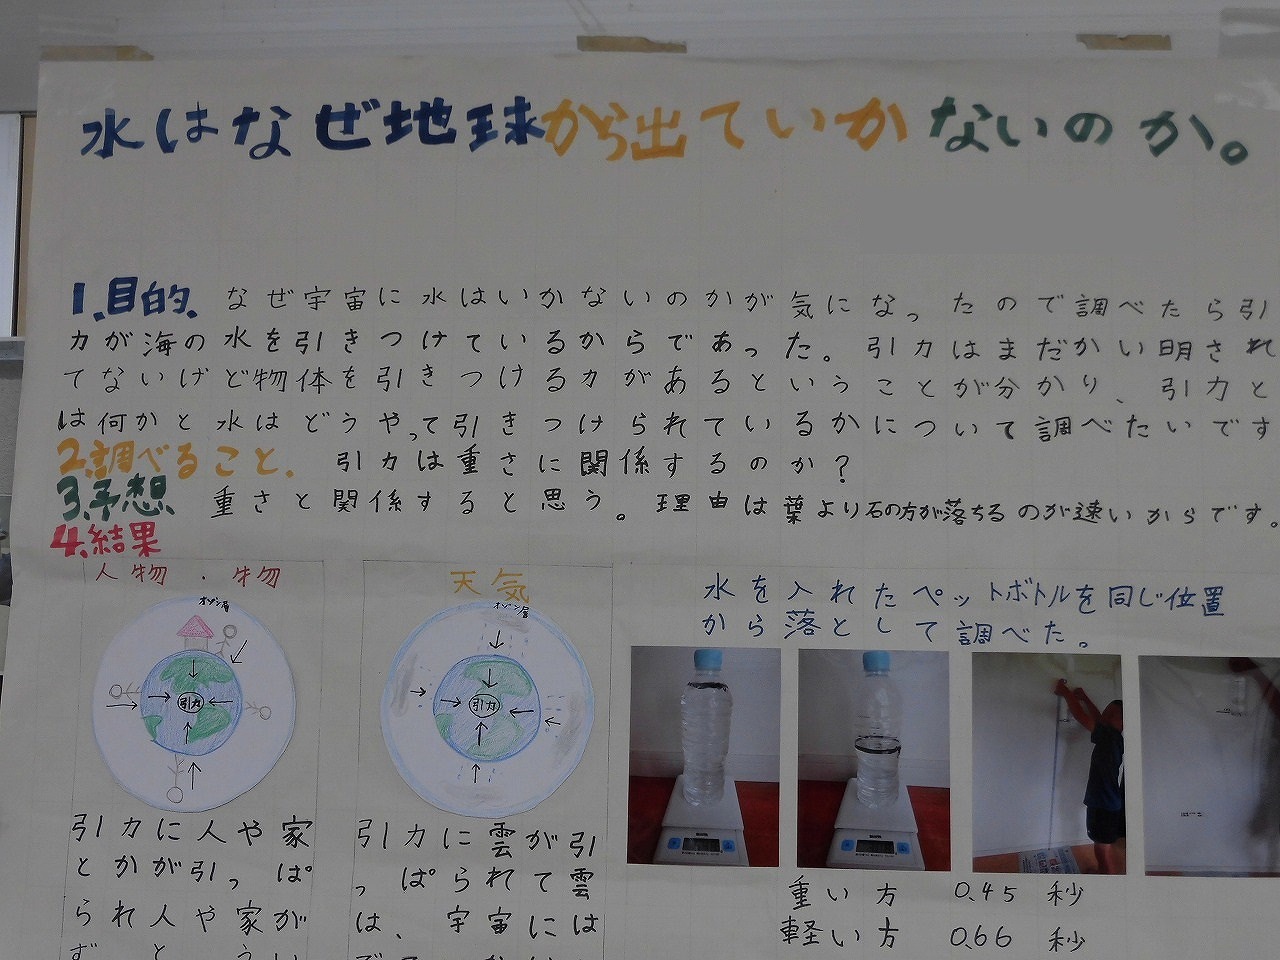 水はなぜ地球から出ていかないのか。
1.目的. なぜ宇宙に水はいかないのかが気になったので調べたら引
力が海の水を引きつけているからであった。引力はまだかい明され
てないけど物体を引きつける力があるということが分かり、引力と
は何かと水はどうやって引きつけられているかについて調べたいです
2.調べること. 引力は重さに関係するのか?
3.予想 重さと関係すると思う。理由は葉より石の方が落ちるのが速いからです。
4.結果
人物・
オゾン層
引力
引力に人や家
とかが引っぱ
られ人や家が
ず と うい
天気
オゾン層
引力
引力に雲が引
っぱられて雲
は、宇宙には
水を入れたペットボトルを同じ位置
から落として調べた。
重い方 0.45 秒
軽い方 0.66 秒